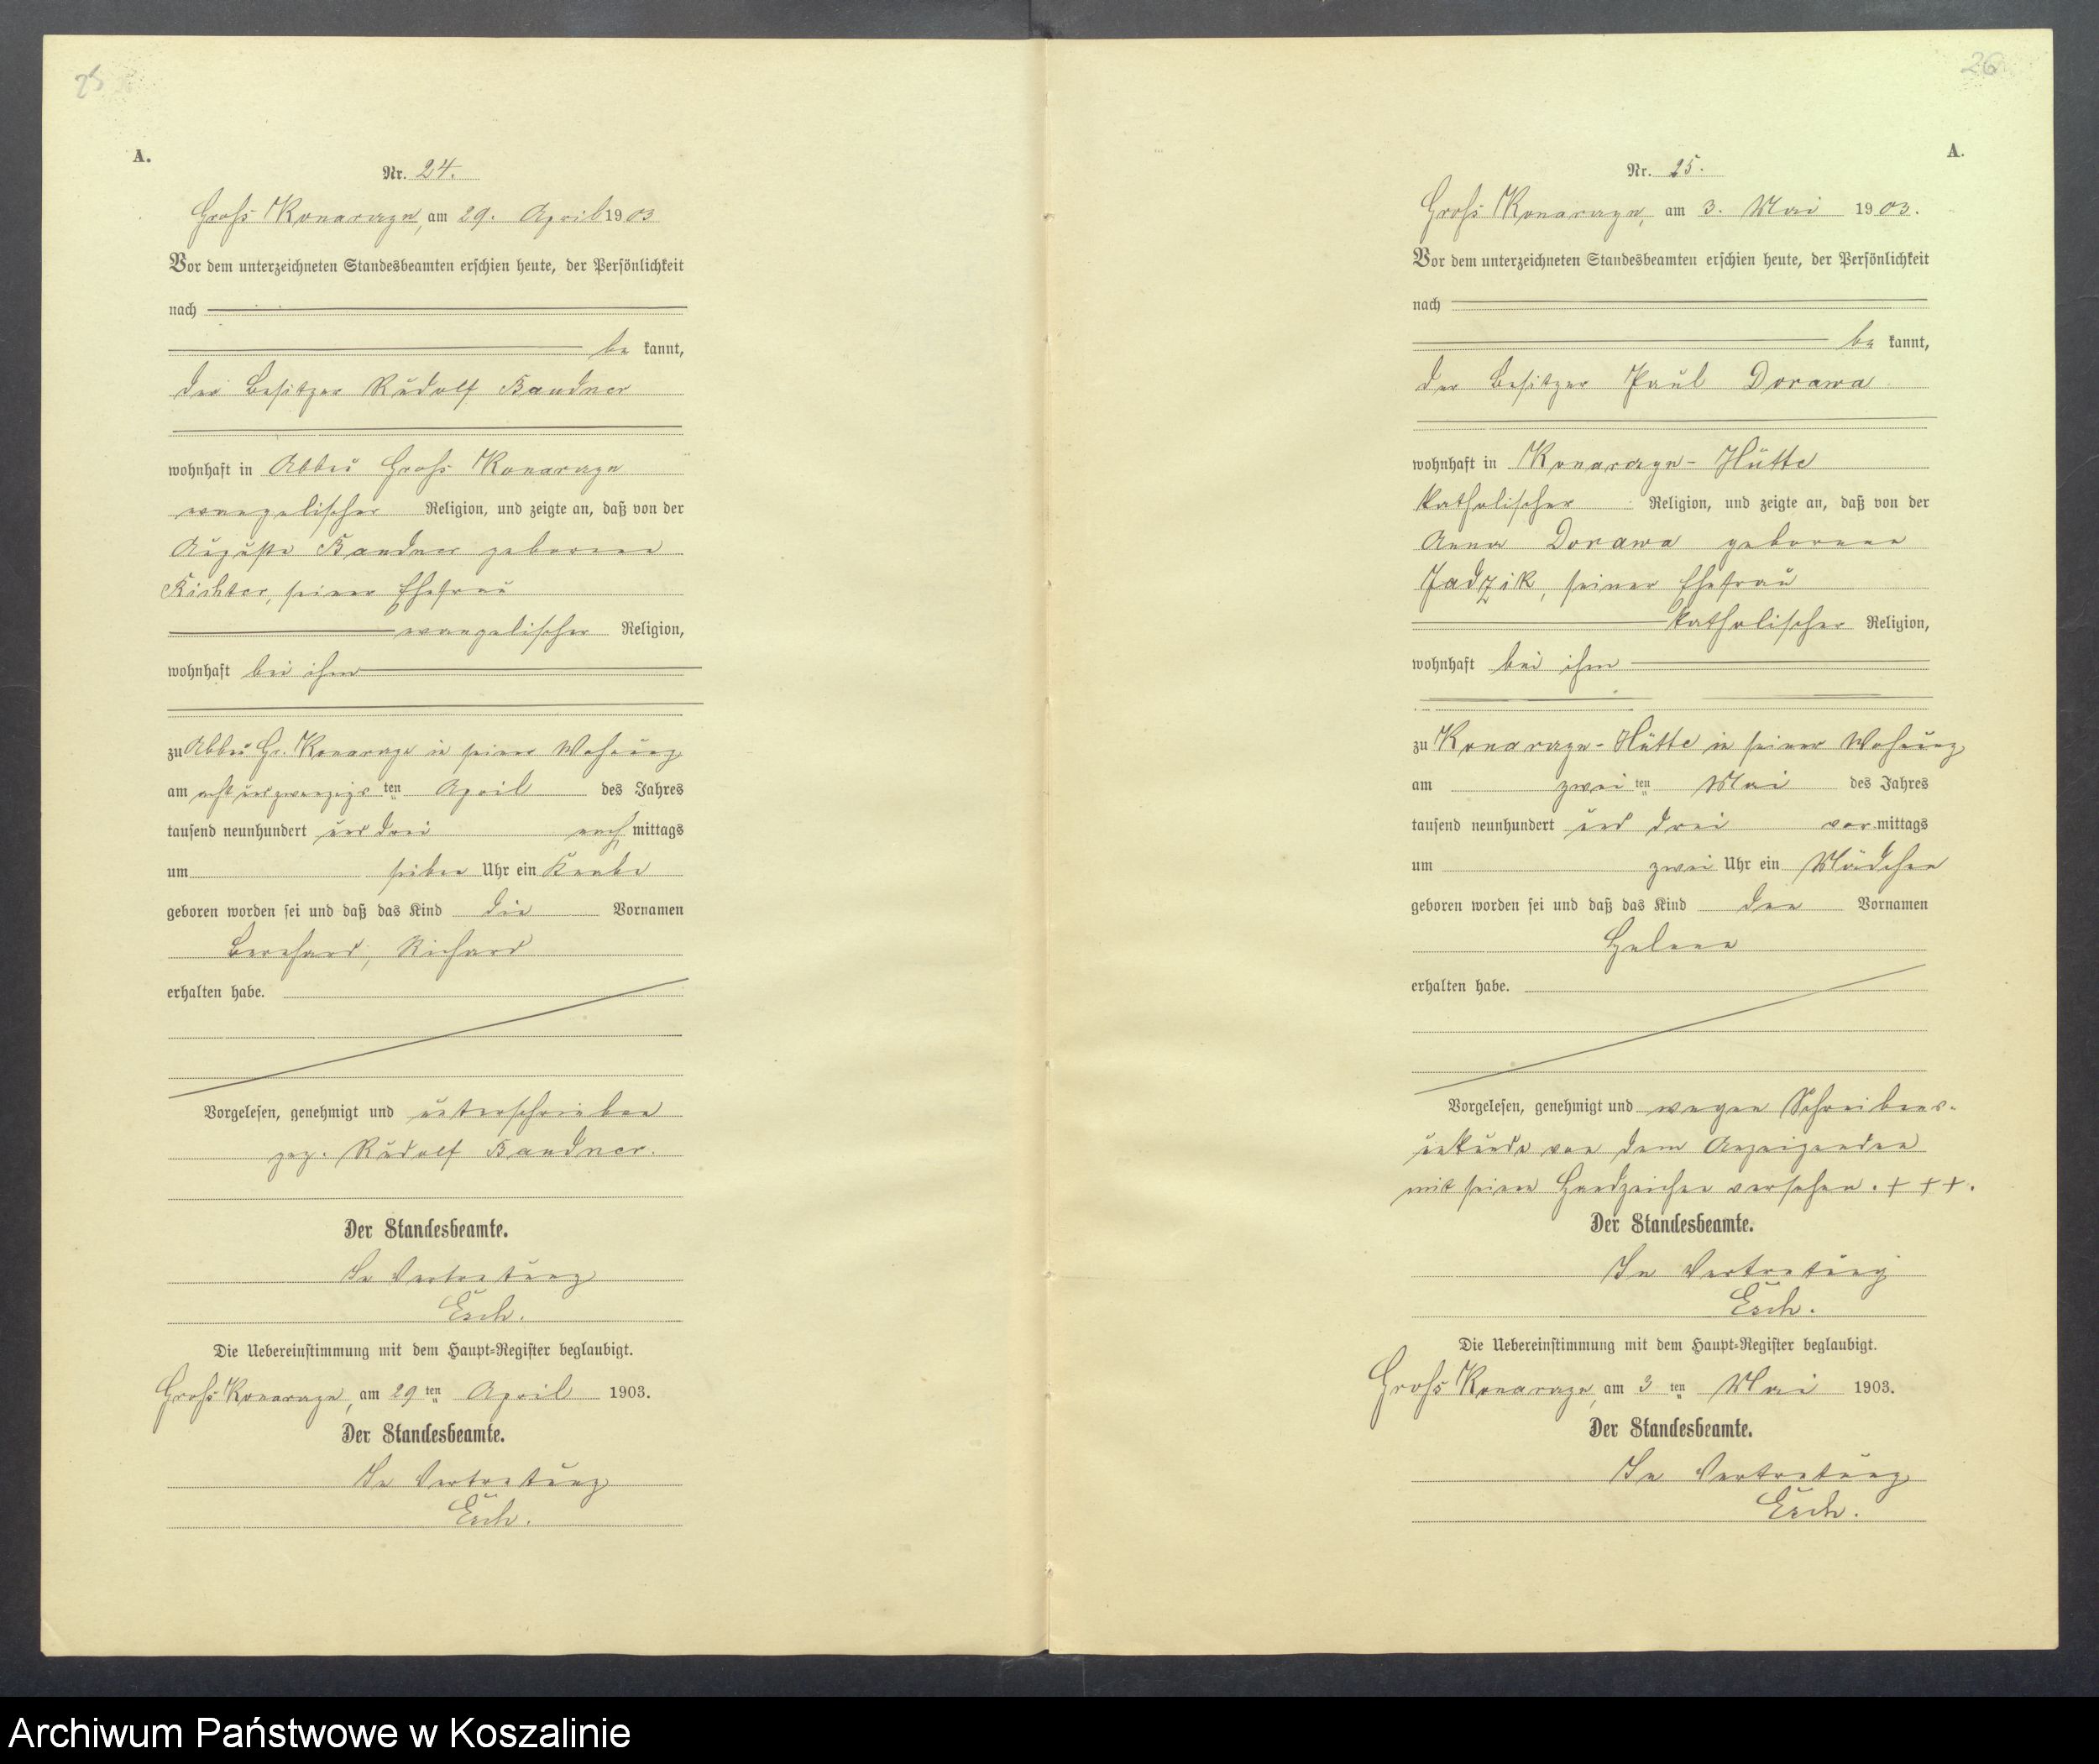 25
A.
Nr. 24.
Groß Konarzyn, am 29. April 1903
Vor dem unterzeichneten Standesbeamten erschien heute, der Persönlichkeit
nach
be kannt,
der Besitzer Rudolf Bandner
wohnhaft in Abbau Groß Konarzyn
evangelischer Religion, und zeigte an, daß von der
Auguste Bandner geborene
Richter, seiner Ehefrau
evangelischer Religion,
wohnhaft bei ihm
zu Abbau Gr. Konarzyn in seiner Wohnung
am acht und zwanzigs ten April des Jahres
tausend neunhundert und drei nach mittags
um sieben Uhr ein Knabe
geboren worden sei und daß das Kind die Vornamen
Bernhard, Richard
erhalten habe.
Vorgelesen, genehmigt und unterschrieben
gez. Rudolf Bandner.
Der Standesbeamte.
In Vertretung
Esch.
Die Uebereinstimmung mit dem Haupt-Register beglaubigt.
Groß Konarzyn, am 29 ten April 1903.
Der Standesbeamte.
In Vertretung
Esch.
26
A.
Nr. 25.
Groß Konarzyn, am 3. Mai 1903.
Vor dem unterzeichneten Standesbeamten erschien heute, der Persönlichkeit
nach
be kannt,
der Besitzer Paul Dorawa
wohnhaft in Konarzyn-Hütte
katholischer Religion, und zeigte an, daß von der
Anna Dorawa geborene
Jadzik, seiner Ehefrau
katholischer Religion,
wohnhaft bei ihm
zu Konarzyn-Hütte in seiner Wohnung
am zwei ten Mai des Jahres
tausend neunhundert und drei vor mittags
um zwei Uhr ein Mädchen
geboren worden sei und daß das Kind den Vornamen
Helene
erhalten habe.
Vorgelesen, genehmigt und wegen Schreibens-
unkunde von dem Anzeigenden
mit seinem Handzeichen versehen. +++.
Der Standesbeamte.
In Vertretung
Esch.
Die Uebereinstimmung mit dem Haupt-Register beglaubigt.
Groß Konarzyn, am 3 ten Mai 1903.
Der Standesbeamte.
In Vertretung
Esch.
Archiwum Państwowe w Koszalinie